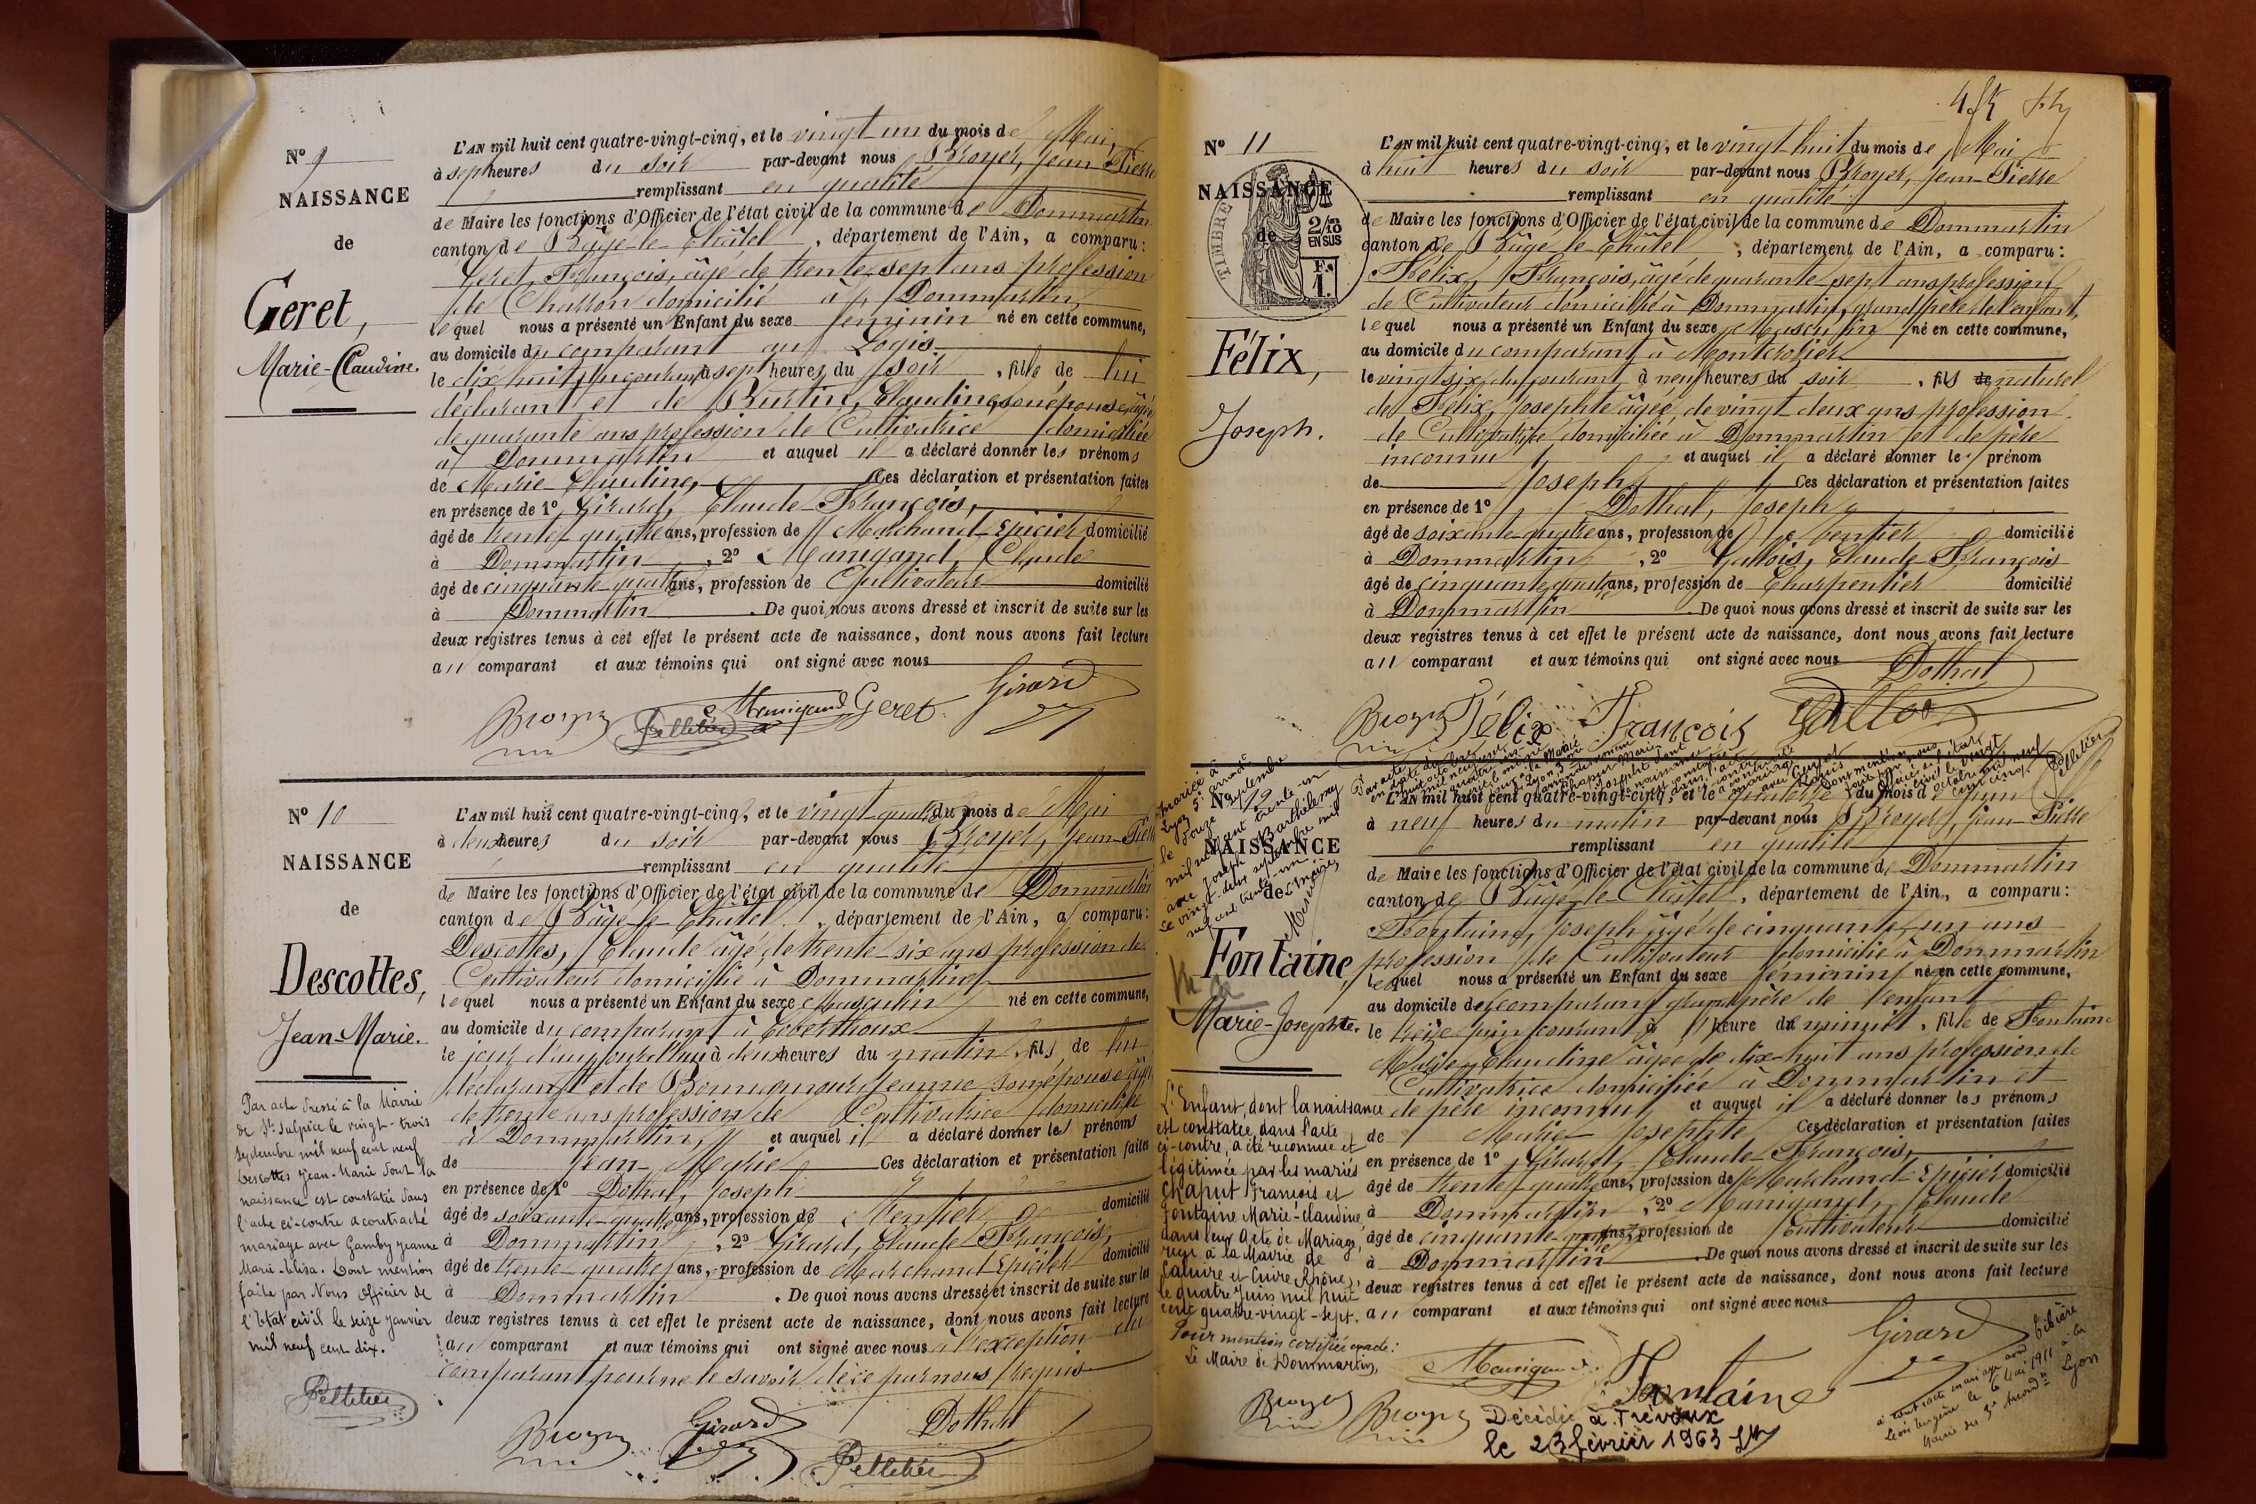 N° 9
NAISSANCE
de
Geret,
Marie-Claudine.
L'AN mil huit cent quatre-vingt-cinq, et le vingt un du mois de Mai,
à sept heures du soir par-devant nous Broyer, Jean Pierre
remplissant en qualité
de Maire les fonctions d'Officier de l'état civil de la commune de Dommartin
canton de Bâgé-le-Châtel, département de l'Ain, a comparu:
Geret, François, âgé de trente-sept ans profession
de Charron domicilié à Dommartin,
lequel nous a présenté un Enfant du sexe féminin né en cette commune,
au domicile du comparant au Logis.
le dix huit du courant à sept heures du soir, fille de lui
déclarant et de Burtin, Claudine, son épouse, âgée
de quarante ans profession de Cultivatrice domiciliée
à Dommartin et auquel il a déclaré donner les prénoms
de Marie-Claudine, Ces déclaration et présentation faites
en présence de 1° Girard, Claude-François,
âgé de trente-quatre ans, profession de Marchand-Epicier domicilié
à Dommartin, 2° Manigand, Claude
âgé de cinquante-quatre ans, profession de Cultivateur domicilié
à Dommartin. De quoi nous avons dressé et inscrit de suite sur les
deux registres tenus à cet effet le présent acte de naissance, dont nous avons fait lecture
au comparant et aux témoins qui ont signé avec nous
Broyer Pelletier Manigand Geret Girard
N° 10
NAISSANCE
de
Descottes,
Jean-Marie.
Par acte dressé à la Mairie
de St. Sulpice le vingt-trois
septembre mil neuf cent neuf
Descottes Jean-Marie dont la
naissance est constatée dans
l'acte ci-contre a contracté
mariage avec Gamby Jeanne
Marie-Elisa. Dont mention
faite par Nous Officier de
l'Etat civil le seize janvier
mil neuf cent dix.
Pelletier
L'AN mil huit cent quatre-vingt-cinq, et le vingt-quatre du mois de Mai
à deux heures du soir par-devant nous Broyer, Jean-Pierre
remplissant en qualité
de Maire les fonctions d'Officier de l'état civil de la commune de Dommartin
canton de Bâgé-le-Châtel, département de l'Ain, a comparu:
Descottes, Claude âgé de trente-six ans profession de
Cultivateur domicilié à Dommartin
lequel nous a présenté un Enfant du sexe Masculin né en cette commune,
au domicile du comparant à
le jour d'aujourd'hui à deux heures du matin, fils de lui
déclarant et de Bonnamour, Jeanne son épouse âgée
de trente ans profession de Cultivatrice domiciliée
à Dommartin, et auquel il a déclaré donner les prénoms
de Jean-Marie Ces déclaration et présentation faites
en présence de 1° Dothal, Joseph
âgé de soixante-quatre ans, profession de Rentier domicilié
à Dommartin, 2° Girard, Claude François,
âgé de trente-quatre ans, profession de Marchand Epicier domicilié
à Dommartin. De quoi nous avons dressé et inscrit de suite sur les
deux registres tenus à cet effet le présent acte de naissance, dont nous avons fait lecture
au comparant et aux témoins qui ont signé avec nous à l'exception du
comparant pour ne le savoir de ce par nous requis
Broyer Girard Dothal
Pelletier
N° 11
NAISSANCE
de
TIMBRE
2/10
EN SUS
Félix,
Joseph.
L'AN mil huit cent quatre-vingt-cinq, et le vingt-huit du mois de Mai
à huit heures du soir par-devant nous Broyer, Jean-Pierre
remplissant en qualité
de Maire les fonctions d'Officier de l'état civil de la commune de Dommartin
canton de Bâgé-le-Châtel, département de l'Ain, a comparu:
Félix, François, âgé de quarante sept ans profession
de Cultivateur domicilié à Dommartin, grand père de l'enfant,
lequel nous a présenté un Enfant du sexe Masculin né en cette commune,
au domicile du comparant à Montcrozier
le vingt six du courant à neuf heures du soir, fils de naturel
de Félix, Josephte âgée de vingt deux ans profession
de Cultivatrice domiciliée à Dommartin et de père
inconnu et auquel il a déclaré donner le prénom
de Joseph, Ces déclaration et présentation faites
en présence de 1° Dothal, Joseph
âgé de soixante-quatre ans, profession de rentier domicilié
à Dommartin, 2° Gallois, Claude François
âgé de cinquante quatre ans, profession de Charpentier domicilié
à Dommartin De quoi nous avons dressé et inscrit de suite sur les
deux registres tenus à cet effet le présent acte de naissance, dont nous avons fait lecture
au comparant et aux témoins qui ont signé avec nous
Dothal
Broyer Félix François
Pelletier
N° 12
NAISSANCE
de
Fontaine,
Marie-Josephte.
L'Enfant, dont la naissance
est constatée dans l'acte
ci-contre, a été reconnue et
légitimée par les mariés
Chaput François et
Fontaine Marie-Claudine,
dans leur Acte de Mariage,
reçu à la Mairie de
Caluire et Cuire Rhône,
le quatre Juin mil huit
cent quatre-vingt-sept.
Pour mention certifiée exacte:
Le Maire de Dommartin,
Broyer
L'AN mil huit cent quatre-vingt-cinq, et le quatorze du mois de Juin
à neuf heures du matin par-devant nous Broyer, Jean-Pierre
remplissant en qualité
de Maire les fonctions d'Officier de l'état civil de la commune de Dommartin
canton de Bâgé-le-Châtel, département de l'Ain, a comparu:
Fontaine, Joseph âgé de cinquante-un ans
profession de Cultivateur domicilié à Dommartin
lequel nous a présenté un Enfant du sexe féminin né en cette commune,
au domicile du comparant grand père de l'enfant
le treize juin courant à heure de minuit, fille de Fontaine
Marie-Claudine âgée de dix-huit ans profession de
Cultivatrice domiciliée à Dommartin et
de père inconnu, et auquel il a déclaré donner les prénoms
de Marie Josephte Ces déclaration et présentation faites
en présence de 1° Girard, Claude-François,
âgé de trente-quatre ans, profession de Marchand-Epicier domicilié
à Dommartin, 2° Manigand, Claude
âgé de cinquante-quatre ans, profession de Cultivateur domicilié
à Dommartin De quoi nous avons dressé et inscrit de suite sur les
deux registres tenus à cet effet le présent acte de naissance, dont nous avons fait lecture
au comparant et aux témoins qui ont signé avec nous
Girard
Manigand Fontaine
Broyer
Décédée à Trévoux
le 23 février 1963